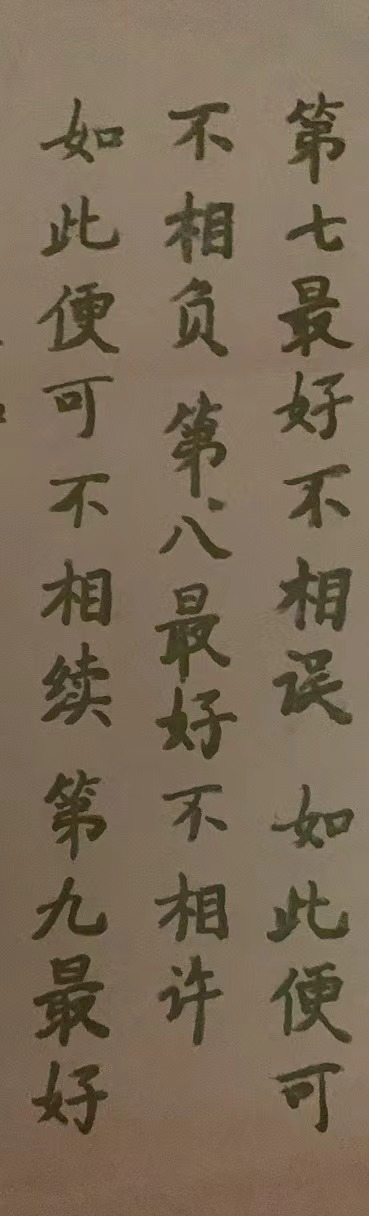 第七最好不相误 如此便可
不相负 第八最好不相许
如此便可不相续 第九最好